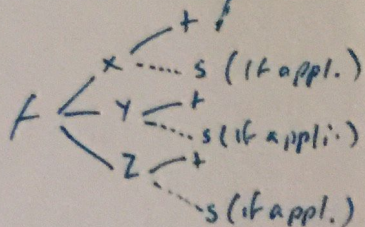 t
x
s (if appl.)
f
y
t
s (if appli.)
z
t
s (if appl.)